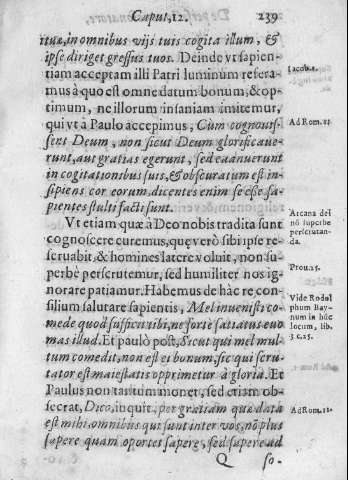 Caput, 12. 239
ituæ, in omnibus vijs tuis cogita illum, &
ipse diriget gressus tuos. Deinde vt sapien-
tiam acceptam illi Patri luminum refera-
mus à quo est omne datum bonum, & op-
timum, ne illorum insaniam imitemur,
qui vt à Paulo accepimus, Cum cognouis-
sent Deum, non sicut Deum glorificaue-
runt, aut gratias egerunt, sed euanuerunt
in cogitationibus suis, & obscuratum est in-
sipiens cor eorum, dicentes enim se esse sa-
pientes stulti facti sunt.
Iacob. 1.
Ad Rom.
Vt etiam quæ à Deo nobis tradita sunt
cognoscere curemus, quę verò sibi ipse re-
seruabit, & homines latere voluit, non su-
perbè perscrutemur, sed humiliter nos ig-
norare patiamur. Habemus de hâc re con-
silium salutare sapientis, Mel inuenisti co-
mede quod sufficit tibi, ne fortè satiatus euo-
mas illud. Et paulò post, Sicut qui mel mul-
tum comedit, non est ei bonum, sic qui scru-
tator est maiestatis opprimetur à gloria. Et
Paulus non tantùm monet, sed etiam ob-
secrat, Dico, inquit, per gratiam quæ data
est mihi, omnibus qui sunt inter vos, nõ plus
sapere quam oportet sapere, sed sapere ad
Arcana dei
nõ superbe
perscrutan-
da.
Prou. 25.
Vide Rodol
phum Bay-
num in hũc
locum, lib.
3 c. 25.
Ad Rom. 12.
Q so-